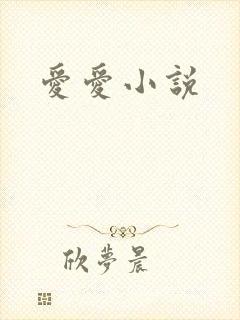 愛愛小說
欣夢晨